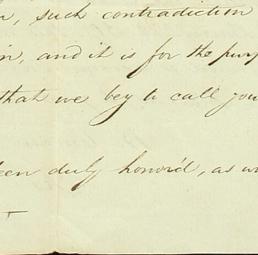 such contradiction
, and it is for the
that we beg to call
duly honor'd, as